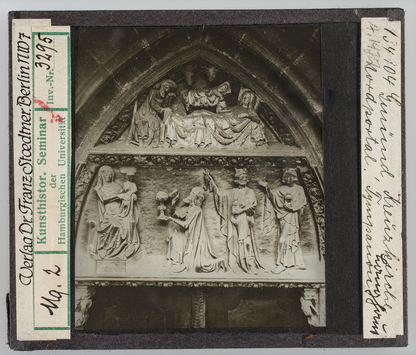 Verlag Dr. Franz Stoedtner, Berlin NW7
Kunsthistor. Seminar
der
Hamburgischen Universität
Inv.-Nr. 3295
Mg. 2
Gmünd Kreuzkirche
Nordportal Tympanon